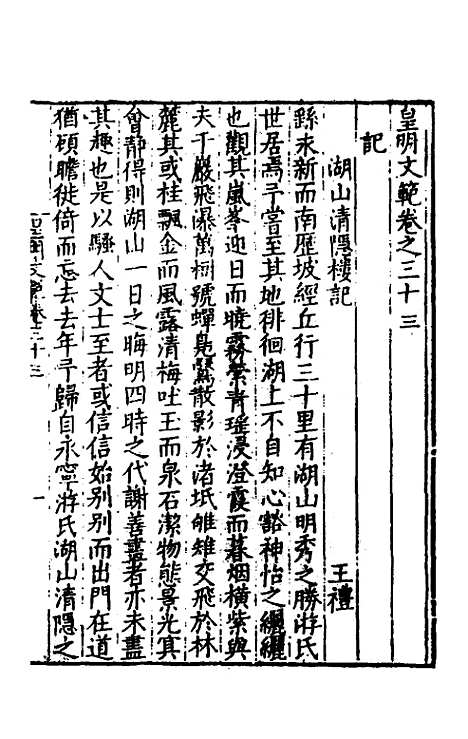 皇明文範卷之三十三
記
湖山清隱樓記
王禮
繇永新而南歷坡經丘行三十里有湖山明秀之勝游氏
世居焉予嘗至其地徘徊湖上不自知心豁神怡之纚纚
也觀其嵐峯迎日而曉霧縈青瑤浸澄霞而暮烟橫紫與
夫千巖飛瀑萬樹號蟬鳧鷖散影於渚坻雊雉交飛於林
麓其或桂飄金而風露清梅吐玉而泉石潔物態景光其
會靜得則湖山一日之晦明四時之代謝善畫者亦未盡
其趣也是以騷人文士至者或信信始別別而出門在道
猶頋瞻徙倚而忘去去年予歸自永寧游氏湖山清隱之
皇明文範卷三十三
一